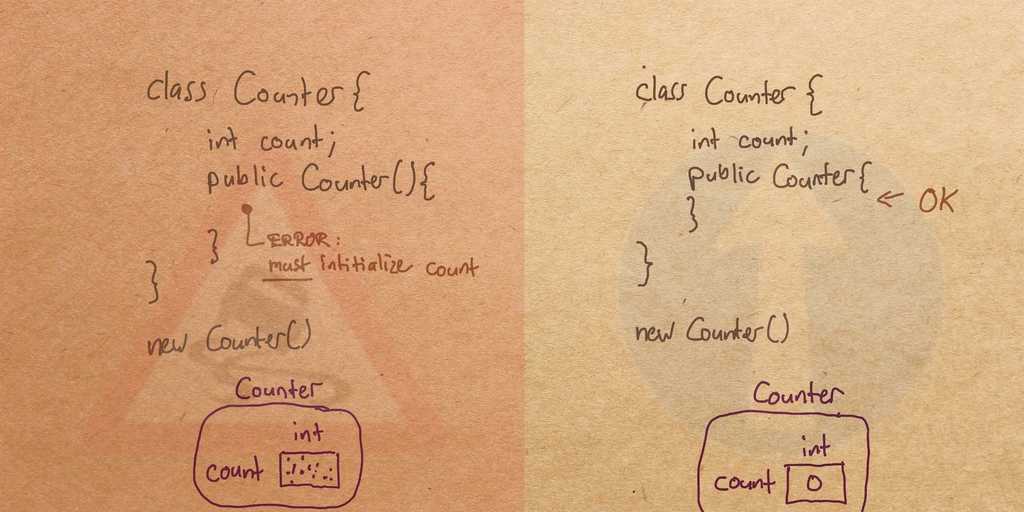 class Counter {
int count;
public Counter(){
ERROR:
must intitialize count
}
}
new Counter()
Counter
int
count
class Counter {
int count;
public Counter{
← OK
}
}
new Counter()
Counter
int
count 0